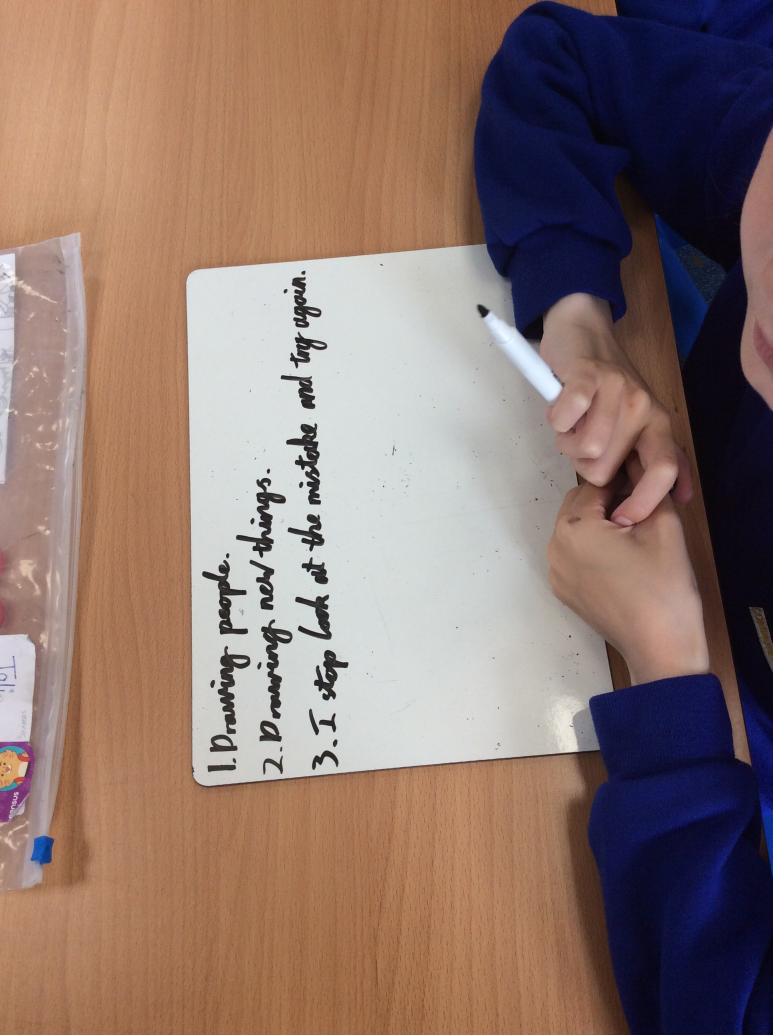 1. Drawing people.
2. Drawing new things.
3. I stop look at the mistake and try again.